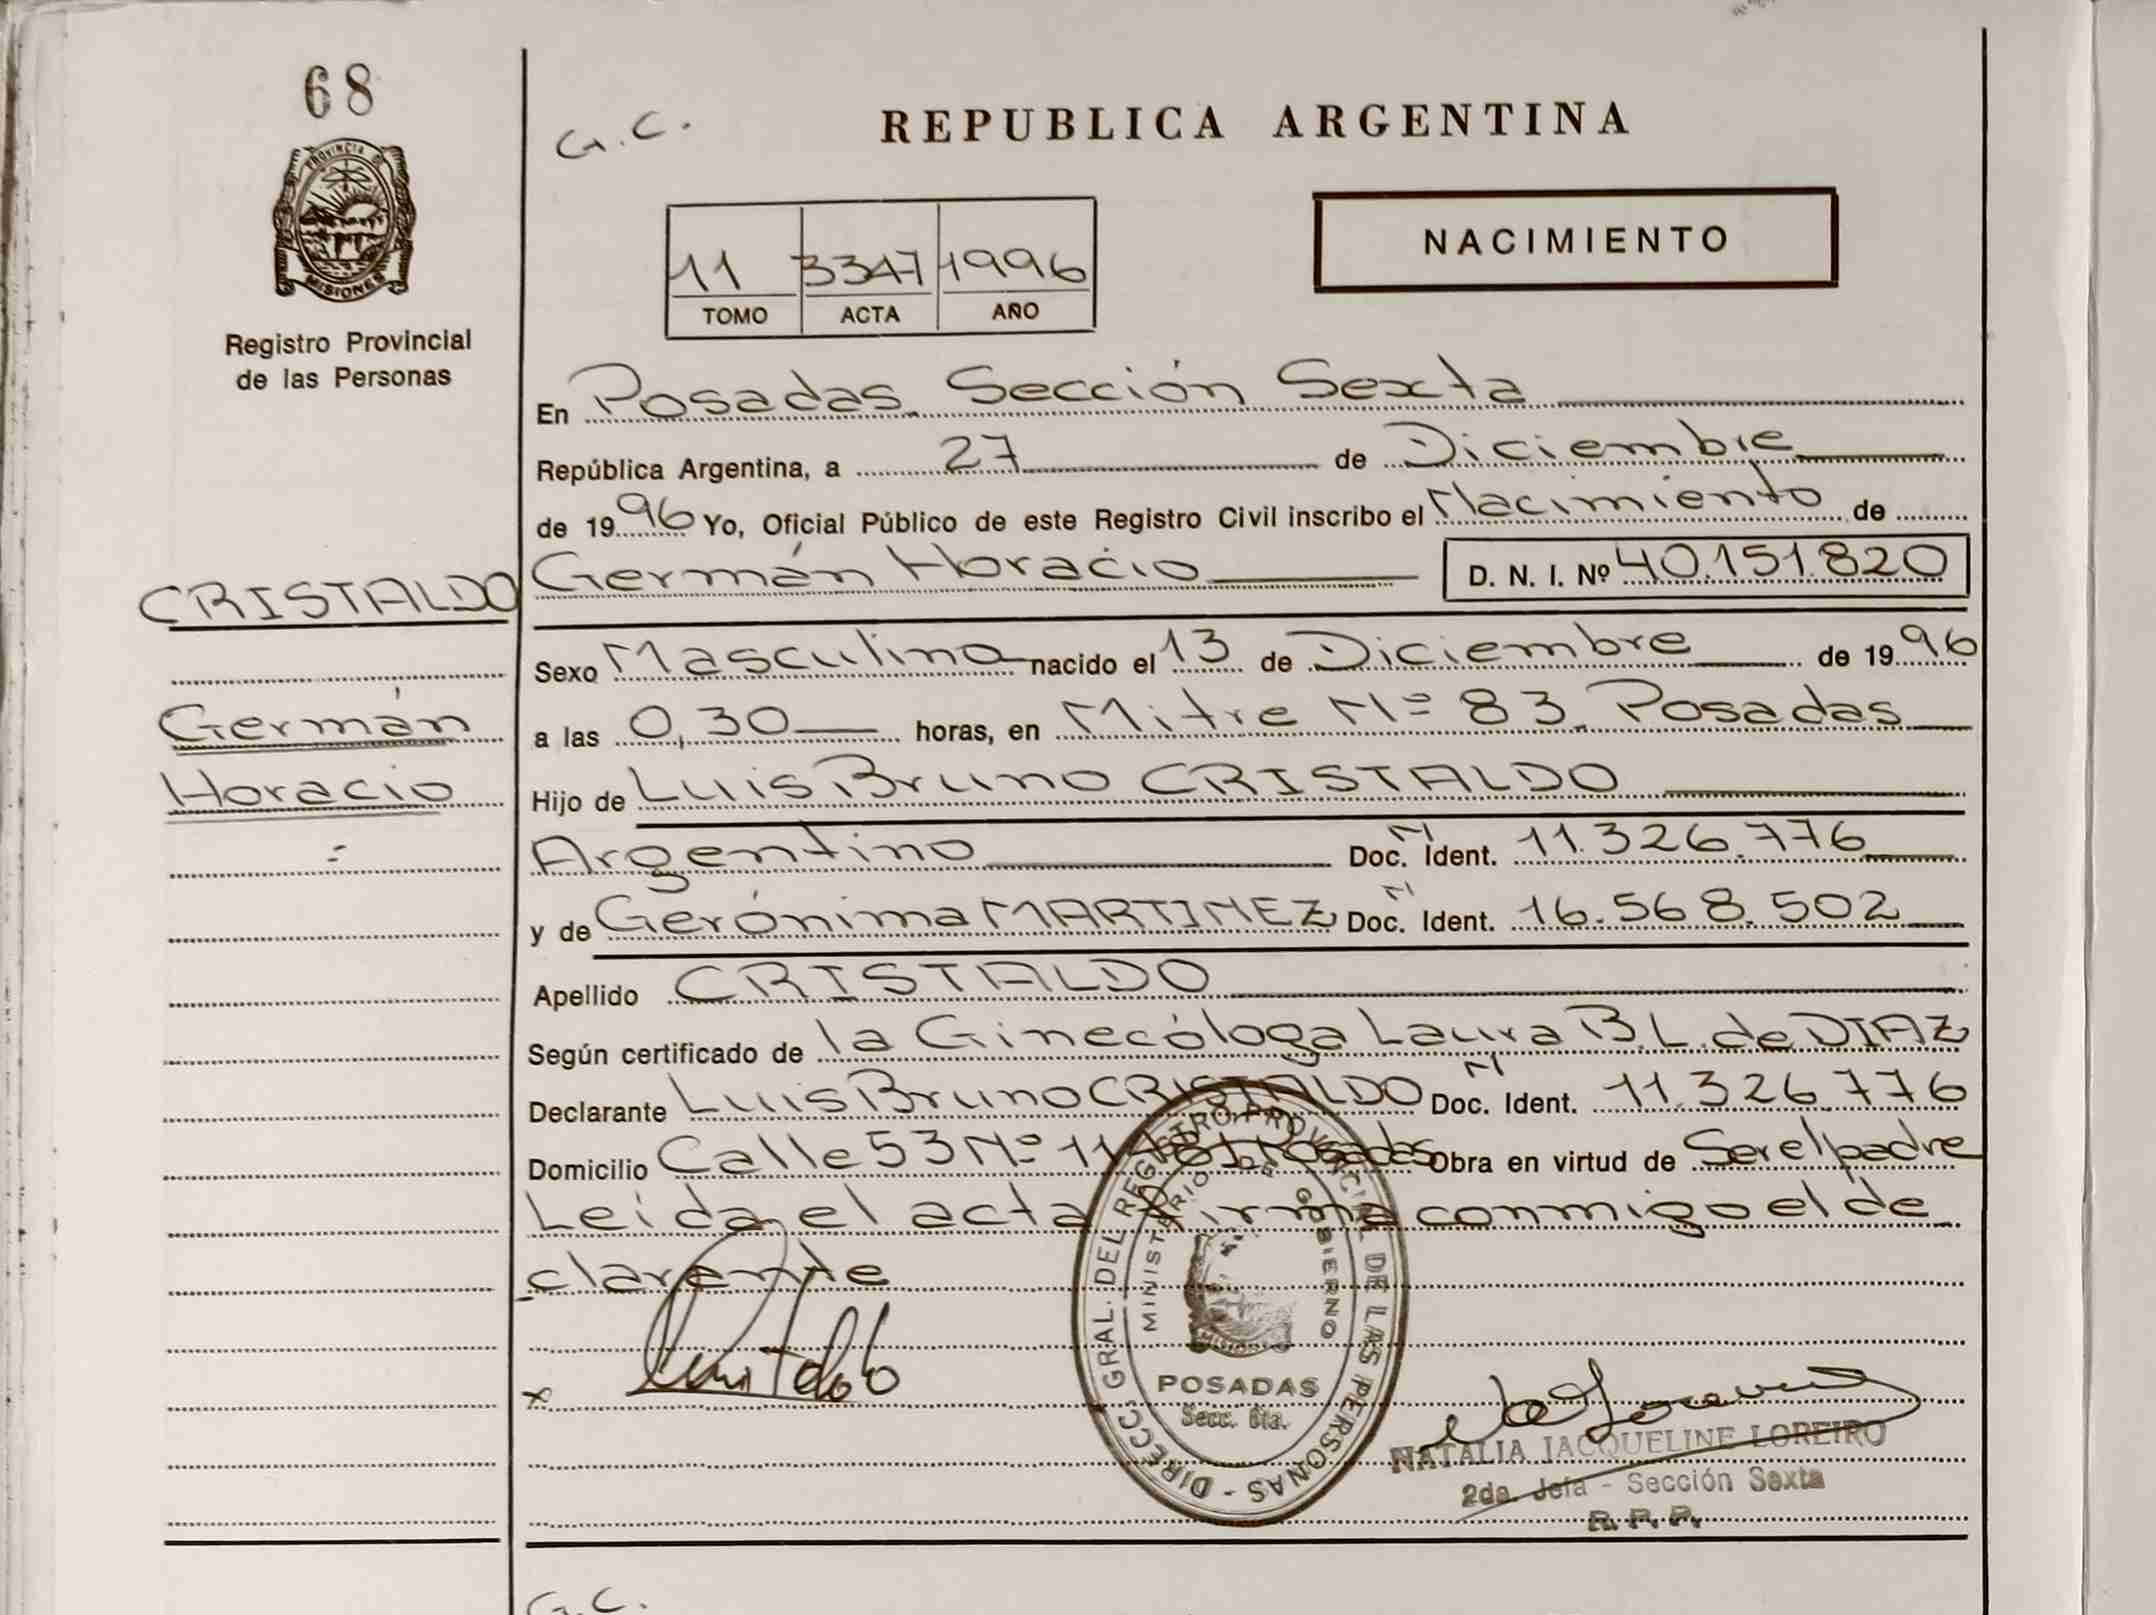 68
PROVINCIA DE
MISIONES
Registro Provincial
de las Personas
CRISTALDO
Germán
Horacio
G.C.
REPUBLICA ARGENTINA
NACIMIENTO
11 3347 1996
TOMO ACTA AÑO
En Posadas Sección Sexta
República Argentina, a 27 de Diciembre
de 1996 Yo, Oficial Público de este Registro Civil inscribo el Nacimiento de
Germán Horacio D. N. I. Nº 40.151.820
Sexo Masculino nacido el 13 de Diciembre de 1996
a las 0,30 horas, en Mitre Nº 83 Posadas
Hijo de Luis Bruno CRISTALDO
Argentino Doc. N Ident. 11.326.776
y de Gerónima MARTINEZ Doc. N Ident. 16.568.502
Apellido CRISTALDO
Según certificado de la Ginecóloga Laura B. L. de DIAZ
Declarante Luis Bruno CRISTALDO Doc. N Ident. 11.326.776
Domicilio Calle 53 Nº Posadas Obra en virtud de Ser el padre
Leída el acta firma conmigo el de
clarante
DIRECC. GRAL. DEL REGISTRO PROVINCIAL DE LAS PERSONAS -
MINISTERIO DE GOBIERNO
POSADAS
Secc. 6ta.
NATALIA JACQUELINE LOREIRO
2da. Jefa - Sección Sexta
R. P. P.
G.C.